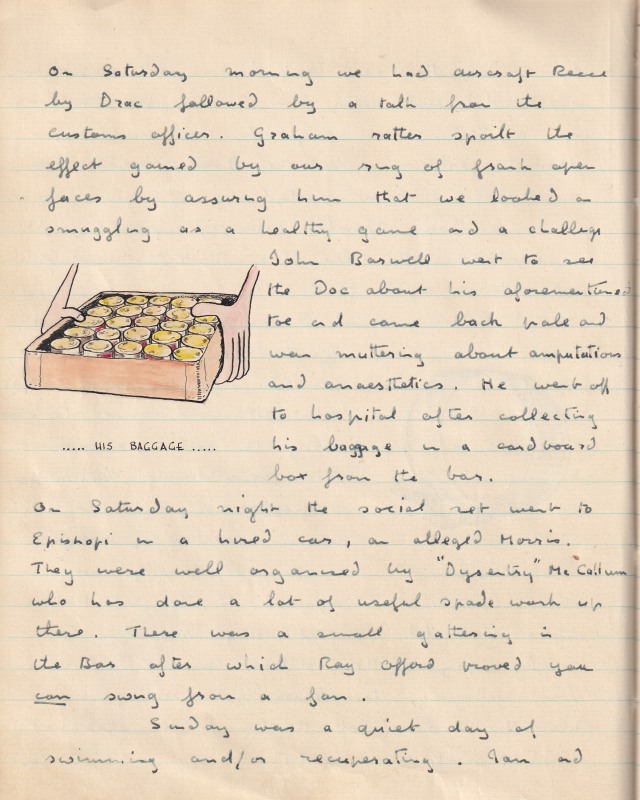 On Saturday morning we had aircraft Recce
by Drac followed by a talk from the
customs officer. Graham rather spoilt the
effect gained by our ring of frank open
faces by assuring him that we looked on
smuggling as a healthy game and a challenge
John Barwell went to see
the Doc about his aforementioned
toe and came back pale and
wan muttering about amputations
and anaesthetics. He went off
to hospital after collecting
his baggage in a cardboard
box from the bar.
..... HIS BAGGAGE .....
On Saturday night the social set went to
Episkopi in a hired car, an alleged Morris.
They were well organised by "Dysentry" McCallum
who has done a lot of useful spade work up
there. There was a small gathering in
the Bar after which Ray Offord proved you
can swing from a fan.
Sunday was a quiet day of
swimming and/or recuperating. Ian and